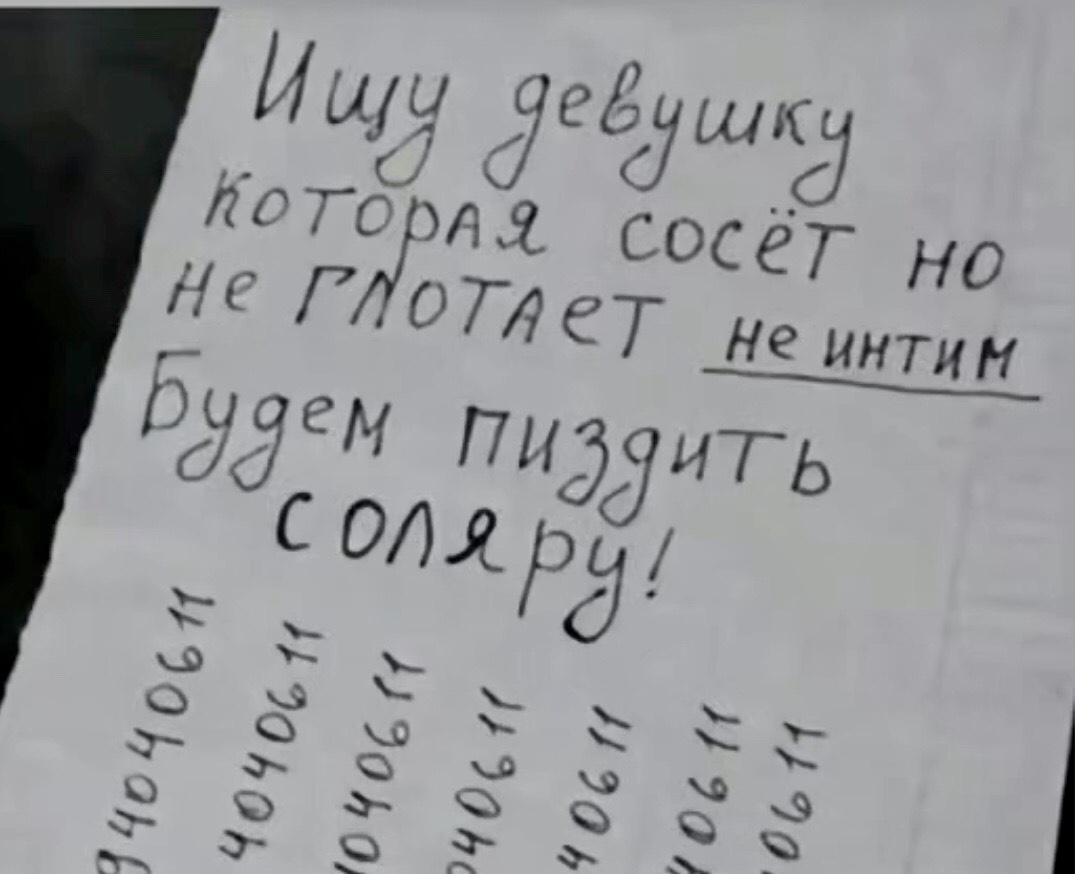 Ищу девушку
которая сосёт но
не глотает не интим
Будем пиздить
соляру!
94040611
4040611
040611
040611
40611
40611
0611